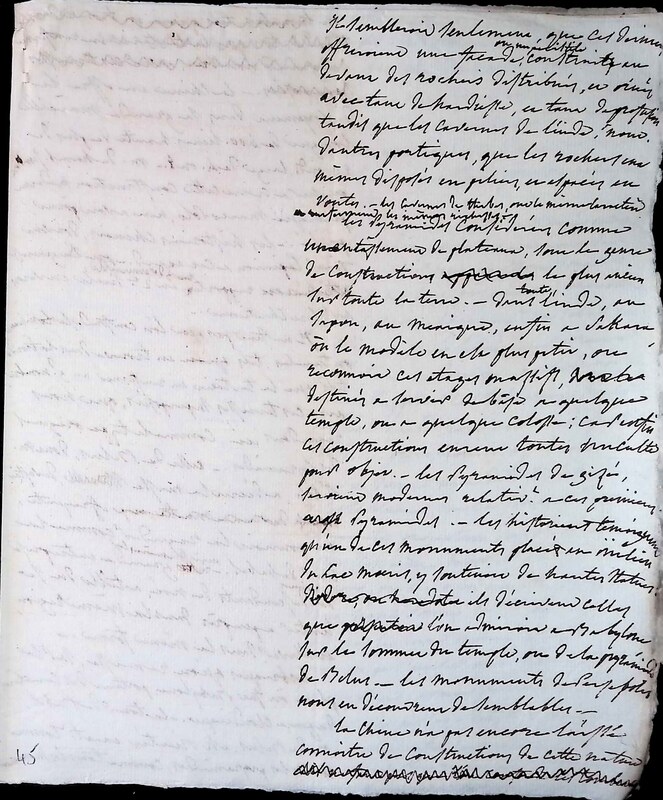 Il sembleroit seulement, que ces derniers
offriroient une façade, construite au
devant des rochers distribués, et ornés
avec tant de hardiesse, et tant de profusion
tandis que les cavernes de l'inde, n'ont
d'autres portiques, que les rochers eux
mêmes disposés en piliers, et en
voutes. – les cavernes de thebes,
les pyramides considérées comme
un entassement de plateaux, sont le genre
de constructions le plus ancien
sur toute la terre. – Dans toute l'inde, au
Japon, au mexique, enfin a Sakara
où le modele en est plus petit, on
reconnoit ces etages massifs,
destinés a servir de base a quelque
temple, ou a quelque colosse; car enfin
ces constructions eurent toutes un culte
pour objet. – les Pyramides de gizé,
seroient modernes relativt. a ces premieres
Pyramides. – les historiens temoignent
qu'un de ces monuments placé au milieu
du Lac moeris, y soutenoit de hautes statues
ils décrivent celles
que l'on admiroit a Babylone
sur le sommet du temple, ou de la pyramide
de Belus. – les monuments de Persepolis
nous en découvrent de semblables. –
la Chine n'a pas encore laissé
connoitre de constructions de cette nature
45